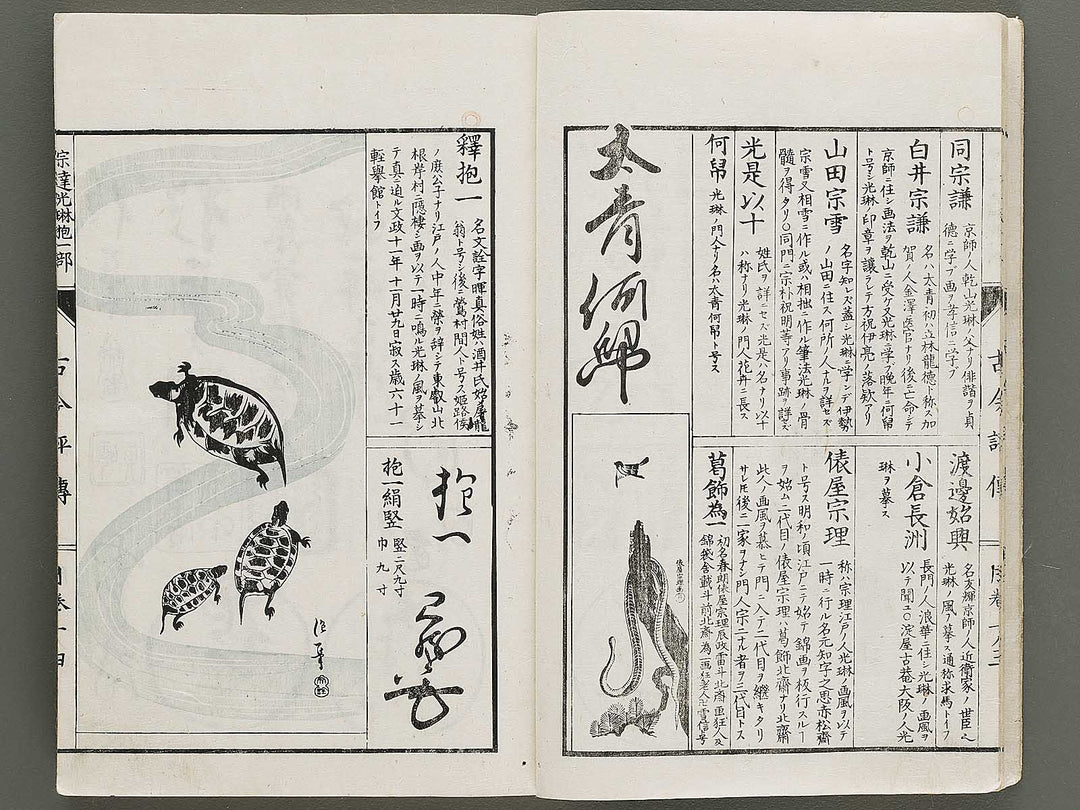 同宗謙
京師ノ人乾山光琳ノ父ナリ俳諧ヲ貞
德ニ学ブ画ヲ孝信ニ学ブ
白井宗謙
名ハ太青初ハ立林龍德ト称ス加
賀ノ人金澤医官ナリ後亡命シテ
京師ニ住シ画法ヲ乾山ニ受ケ又光琳ニ学フ晩年ニ何帠
ト号シ光琳ノ印章ヲ讓ラレテ方祝伊亮ノ落欵アリ
山田宗雪
名字知レズ蓋シ光琳ニ学ンデ伊勢
ノ山田ニ住ス何所ノ人ナルヲ詳ニセズ
宗雪又相雪ニ作ル或ハ相拙ニ作ル筆法光琳ノ骨
髓ヲ得タリ〇同門ニ宗朴祝明等アリ事跡ヲ詳ニズ
光是以十
姓氏ヲ詳ニセズ光是ハ名ナリ以十
ハ称ナリ光琳ノ門人花卉ニ長ス
何帠
光琳ノ門人ナリ名ハ太青何帠ト号ス
太青何帠
渡邊始興
名友輝京師ノ人近衛家ノ世臣也
光琳ノ風ヲ摹ス通称求馬トイフ
小倉長洲
長門ノ人浪華ニ住シ光琳ノ画風ヲ
以テ聞ユ〇淀屋古菴大阪ノ人光
琳ヲ摹ス
俵屋宗理
称ハ宗理江戸ノ人光琳ノ画風ヲ以テ
一時ニ行ル名元知字之思赤松齋
ト号ス明和ノ頃江戸ニテ始テ錦画ヲ板行スルー
ヲ始ム二代目ノ俵屋宗理ハ葛飾北齋ナリ北齋
此人ノ画風ヲ慕ヒテ門ニ入テ二代目ヲ継キタリ
サレモ後ニ一家ヲナシ門人宗二ナル者ヲ三代目トス
葛飾為一
初名春朗俵屋宗理辰政雷斗北斎画狂人及
錦袋舎戴斗前北齋為一画狂老人卍ト号
俵屋宗理画
古今評傳
宗達光琳抱一部
釋抱一
名文詮字暉真俗姓ハ酒井氏始屠龍
翁ト号シ後ニ鶯村間人ト号ス姫路侯
ノ庶公子ナリ江戸ノ人中年ニ榮ヲ辞シテ東叡山北
根岸村ニ隠棲シ画ヲ以テ一時ニ鳴ル光琳ノ風ヲ慕ン
テ真ニ迫ル文政十一年十一月廿九日寂ス歳六十一
軽擧館トイフ
抱一
抱一絹竪
竪二尺九寸
巾九寸